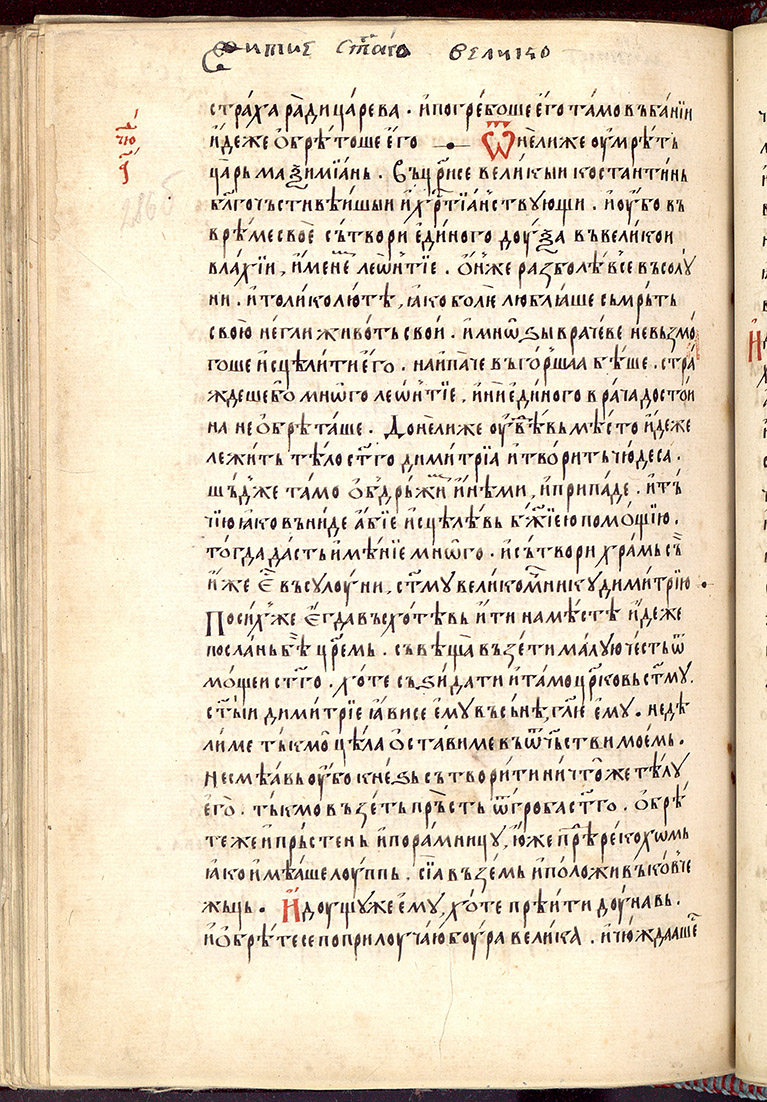 Житие ст҃аго велико
страха ради царева · и погребоше его тамо въ бании
чю҃
идеже обрѣтоше его · Ѿнелиже оумрѣть
а҃
царь маѯимїань · Въцр҃исе великыи костантинь
бл҃гочьстивѣишыи и хр҃тїаньствующи · и оубо въ
врѣме свое сътвори единого доуѯа въ великои
влахїи, именемь леѡнтїе · Онже разболѣвсе въ солу
ни · и толико лютѣ, ꙗко болѥ люблꙗше съмрьть
свою негли животь свои · и мнѡѕы врачеве не възмо
гоше исцѣлити его · наипаче въ горшаа бѣше · стра
ждеше бо мнѡго леѡнтїе, и ни единого врача достои
на не обрѣташе · Донелиже оувѣвь мѣсто идеже
лежить тѣло ст҃го димитрїа и творить чюдеса ·
шьдже тамо обдрьжими инѣми, и припаде · и тъ
чїю ꙗко въниде абїе исцѣлѣвь б҃жїею помощїю ·
тогда дасть имѣнїе мнѡго · и сътвори храмь съ
иже е҃ въ сулоуни, ст҃му великомч҃нику димитрїю
По сих же егда въсхотѣвь ити на мѣстѣ идеже
послань бѣ цр҃емь · съвѣща възети малую честь ѿ
мощеи ст҃го · хоте съѕидати и тамо цр҃ковь ст҃му ·
ст҃ыи димитрїе ꙗвисе ему въ сънѣ, гл҃ѥ ему · недѣ
лиме тъкмо цѣла оставиме въ ѿчьстви моемь ·
Несмѣавь оубо кнеѕь сътворити ничтоже тѣлу
его · тъкмо възеть прьсть ѿ гроба ст҃го · обрѣ
те же и прьстень и порамницу, юже прѣрекохѡмь
ꙗко имѣаше лоуппь · сїа въземь и положи въ ковче
жьць · Идоущу же ему, хоте прѣити доунавь ·
и обрѣтесе по прилоучаю боура велика · и чюждааше